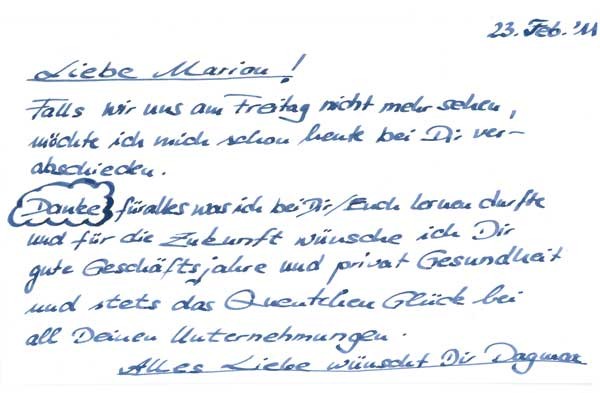 23. Feb. '11
Liebe Marion!
Falls wir uns am Freitag nicht mehr sehen,
möchte ich mich schon heute bei Dir ver-
abschieden.
Danke für alles was ich bei Dir/Euch lernen durfte
und für die Zukunft wünsche ich Dir
gute Geschäftsjahre und privat Gesundheit
und stets das Quentchen Glück bei
all Deinen Unternehmungen.
Alles Liebe wünscht Dir Dagmar